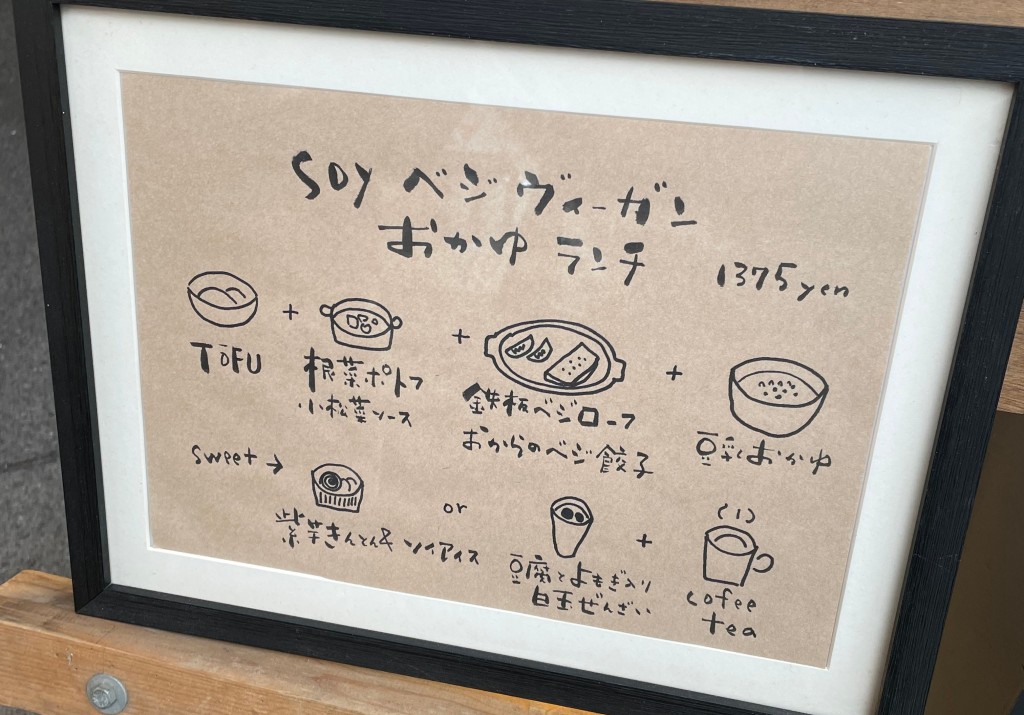 SOY ベジ ヴィーガン
おかゆ ランチ 1375yen
+ + +
TōFU
根菜ポトフ
小松菜ソース
鉄板ベジローフ
おからのベジ餃子
豆乳おかゆ
sweet →
紫芋きんとん& ソイアイス
or
豆腐とよもぎ入り
白玉ぜんざい
+
cofee
tea